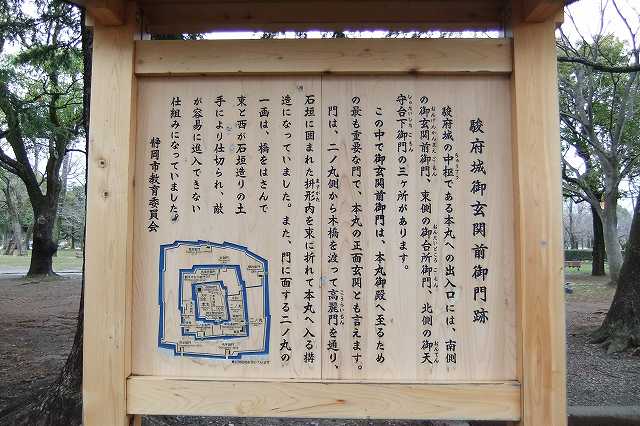 駿府城御玄関前御門跡
駿府城の中枢である本丸への出入口には、南側
の御玄関前御門、東側の御台所御門、北側の御天
守台下御門の三ヶ所があります。
この中で御玄関前御門は、本丸御殿へ至るため
の最も重要な門で、本丸の正面玄関とも言えます。
門は、二ノ丸側から木橋を渡って高麗門を通り、
石垣に囲まれた枡形内を東に折れて本丸へ入る構
造になっていました。また、門に面する二ノ丸の
一画は、橋をはさんで
東と西が石垣造りの土
手により仕切られ、敵
が容易に進入できない
仕組みになっていました。
静岡市教育委員会